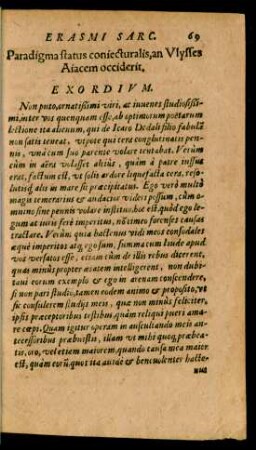 ERASMI SARC. 69
Paradigma status coniecturalis, an Vlysses
Aiacem occiderit.
EXORDIVM.
Non puto, ornatißimi viri, ac iuuenes studiosißi-
mi, inter vos quenquam esse, ab optimorum poetarum
lectione ita alienum, qui de Icaro Dedali filio fabulā
non satis teneat, vtpote qui cera conglutinatis pen-
nis, vnà cum suo parente volare tentabat. Verùm
cùm in aëra volasset altiùs, quàm à patre iussus
erat, factum est, vt solis ardore liquefacta cera, reso-
lutisq́ alis in mare sic præcipitatus. Ego verò multò
magis temerarius & audacior videri possum, cùm o-
mnino sine pennis volare instituo, hoc est, quòd ego le-
gum ac iuris ferè imperitus, nō timeo forenses causas
tractare. Verùm quia hactenus vidi meos consodales
æquè imperitos atq́ ego sum, summa cum laude apud
vos versatos esse, etiam cùm de illis rebus dicerent,
quas minùs propter ætatem intelligerent, non dubi-
taui eorum exemplo & ego in arenam conscendere,
si non pari studio, tamen eodem animo & proposito, vt
sic consulerem studijs meis, quæ non minùs feliciter,
ipsis præceptoribus testibus, quàm reliqui pueri ama-
re cœpi. Quam igitur operam in auscultando meis an-
tecessoribus præbuistis, illam vt mihi quoq́ præbea-
tis, oro, vel etiam maiorem, quando causa mea maior
est, quàm eorū, quot ita attente & beneuolenter hacte-
nus